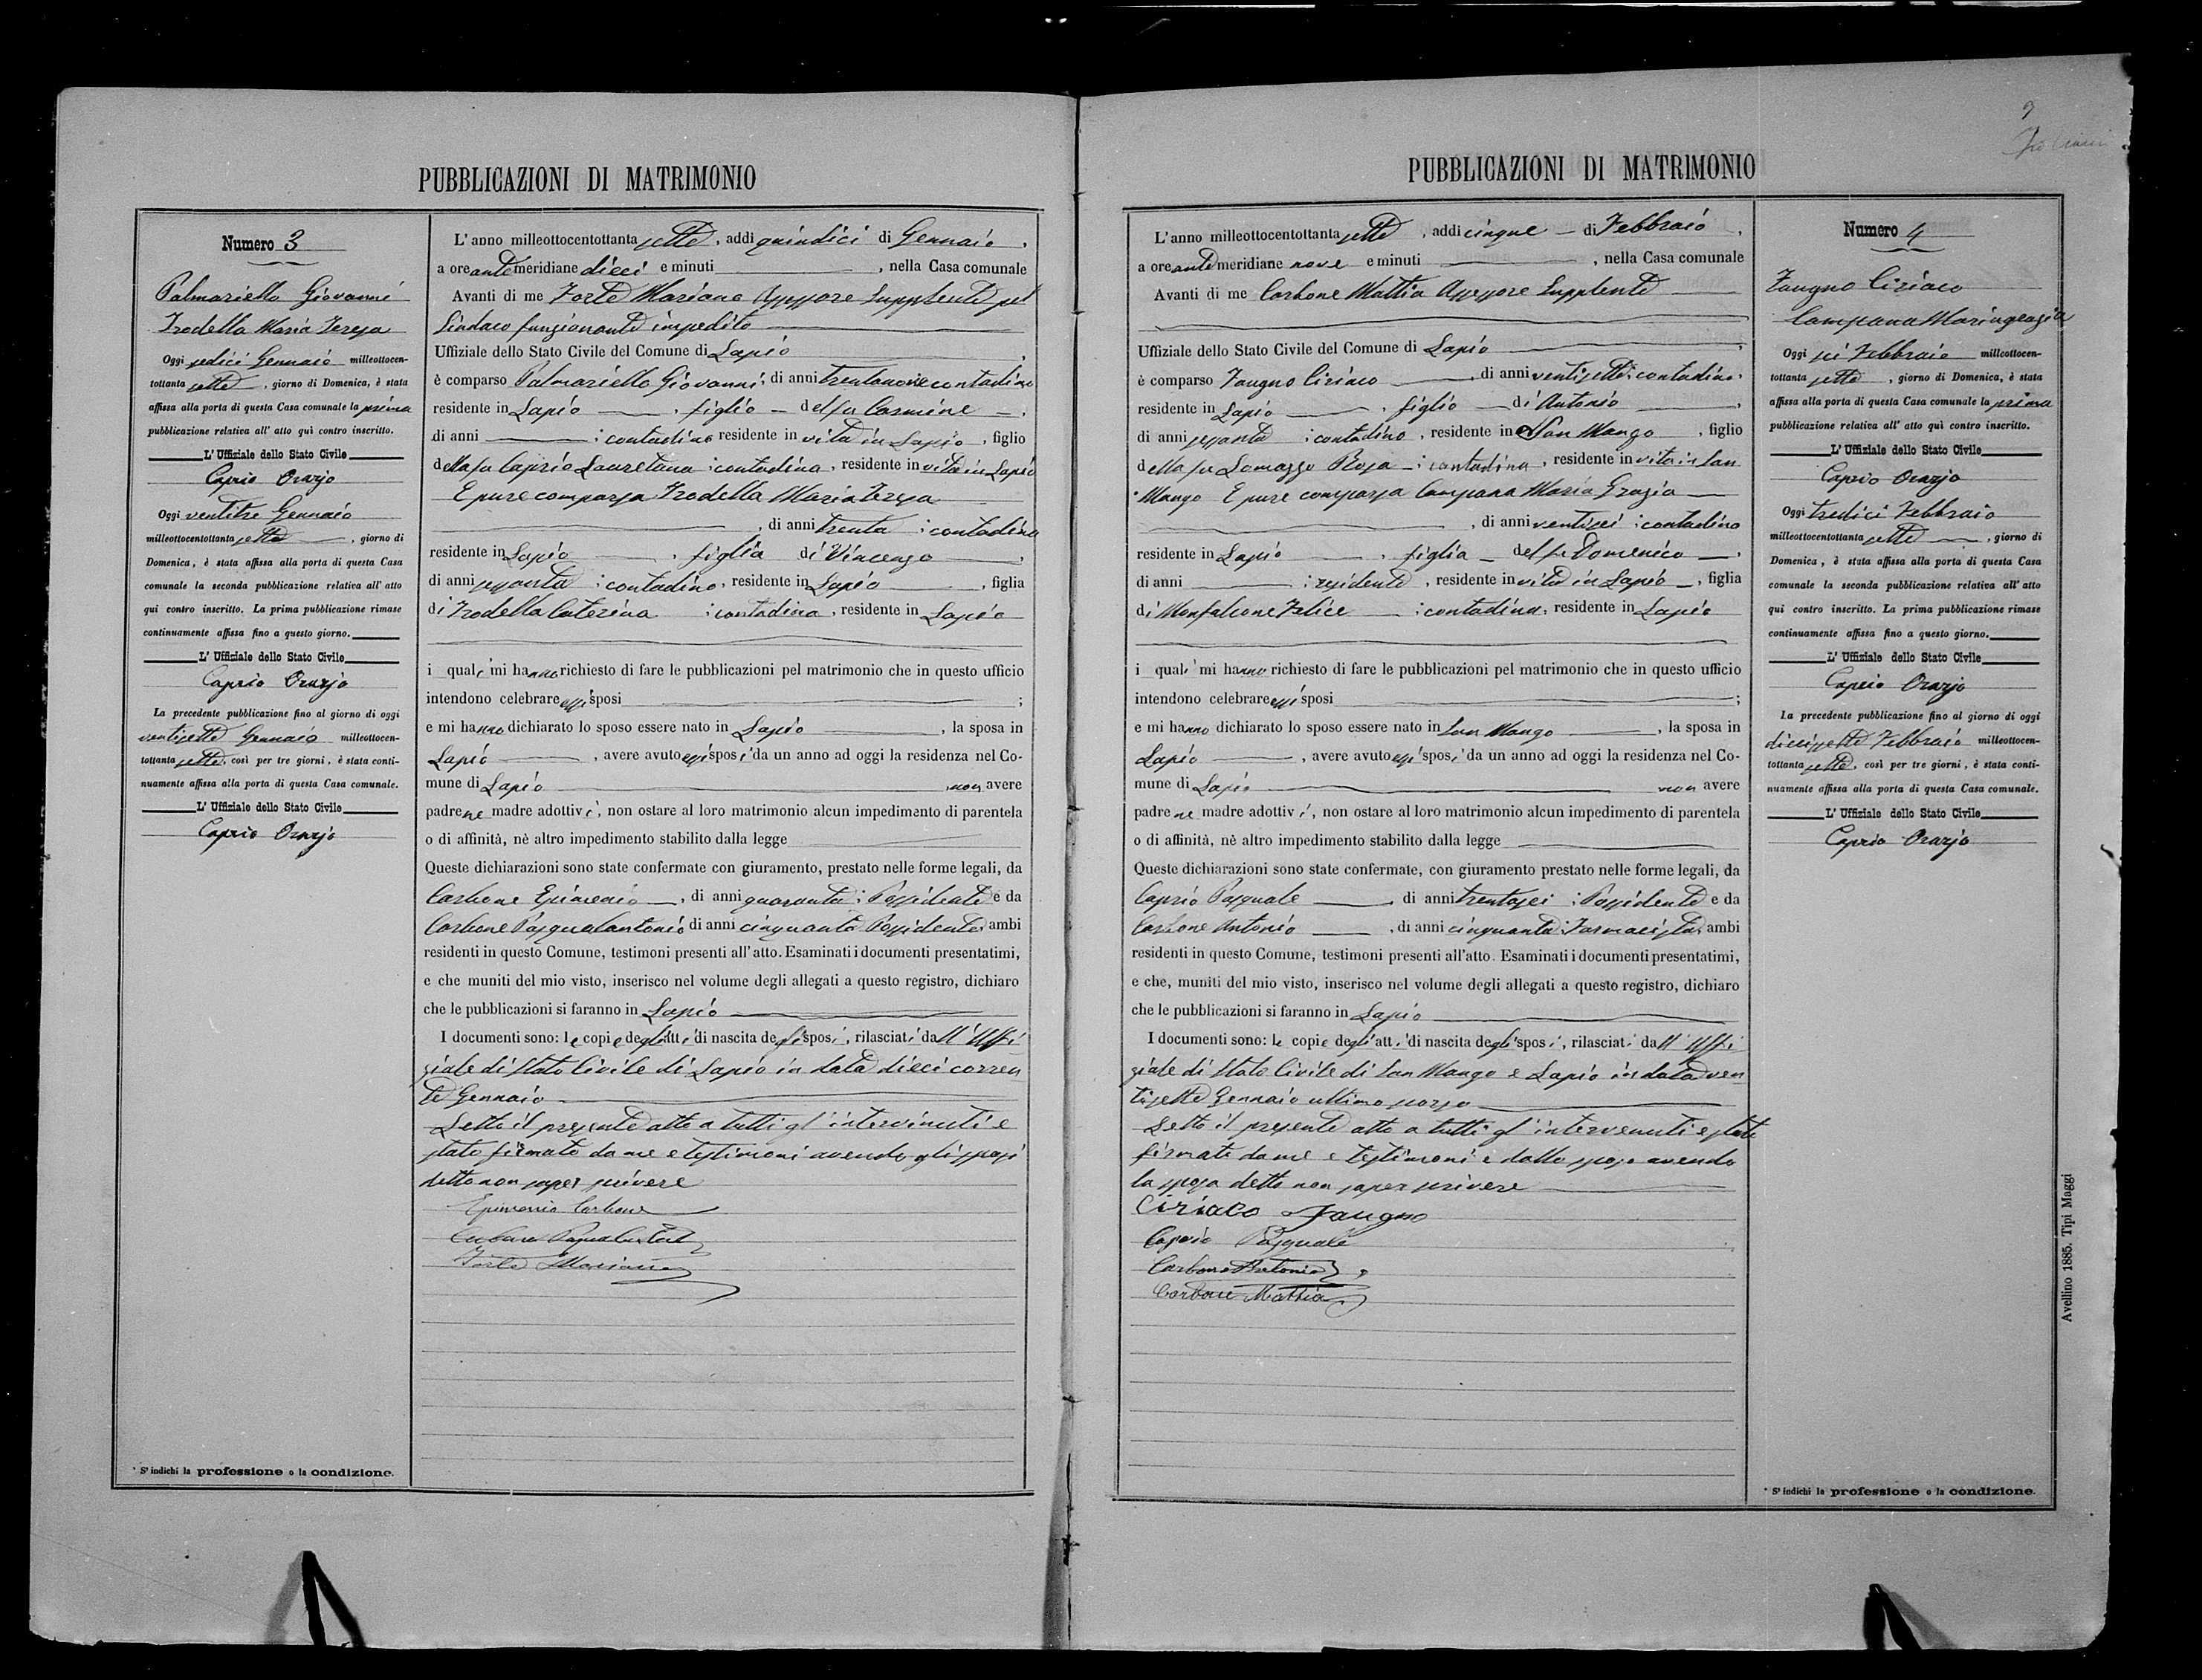 PUBBLICAZIONI DI MATRIMONIO
Numero 3
Palmariello Giovanni
Trodella Maria Teresa
Oggi sedici Gennaio milleottocen-
tottanta sette, giorno di Domenica, è stata
affissa alla porta di questa Casa comunale la prima
pubblicazione relativa all' atto quì contro inscritto.
L' Uffiziale dello Stato Civile
Caprio Orazio
Oggi ventitre Gennaio
milleottocentottanta sette, giorno di
Domenica, è stata affissa alla porta di questa Casa
comunale la seconda pubblicazione relativa all' atto
qui contro inscritto. La prima pubblicazione rimase
continuamente affissa fino a questo giorno.
L' Uffiziale dello Stato Civile
Caprio Orazio
La precedente pubblicazione fino al giorno di oggi
ventisette Gennaio milleottocen-
tottanta sette, così per tre giorni, è stata conti-
nuamente affissa alla porta di questa Casa comunale.
L' Uffiziale dello Stato Civile
Caprio Orazio
* S' indichi la professione o la condizione.
L' anno milleottocentottanta sette, addi quindici di Gennaio,
a ore anti meridiane dieci e minuti , nella Casa comunale
Avanti di me Forte Mariano Assessore Supplente pel
Sindaco funzionante impedito
Uffiziale dello Stato Civile del Comune di Lapio,
è comparso Palmariello Giovanni, di anni trentanove contadino
residente in Lapio, figlio del fu Carmine,
di anni ; contadino residente in vita in Lapio, figlio
della fu Caprio Lauretana; contadina, residente in vita in Lapio
E pure comparsa Trodella Maria Teresa
, di anni trenta; contadina
residente in Lapio, figlia di Vincenzo,
di anni sessanta; contadino, residente in Lapio, figlia
di Trodella Caterina; contadina, residente in Lapio
i quali mi hanno richiesto di fare le pubblicazioni pel matrimonio che in questo ufficio
intendono celebrare essi sposi ;
e mi hanno dichiarato lo sposo essere nato in Lapio, la sposa in
Lapio, avere avuto essi sposi da un anno ad oggi la residenza nel Co-
mune di Lapio non avere
padre ne madre adottivi, non ostare al loro matrimonio alcun impedimento di parentela
o di affinità, nè altro impedimento stabilito dalla legge
Queste dichiarazioni sono state confermate con giuramento, prestato nelle forme legali, da
Carbone Epimenio, di anni quaranta; Possidente e da
Carbone Pasqualantonio di anni cinquanta Possidente, ambi
residenti in questo Comune, testimoni presenti all' atto. Esaminati i documenti presentatimi,
e che muniti del mio visto, inserisco nel volume degli allegati a questo registro, dichiaro
che le pubblicazioni si faranno in Lapio
I documenti sono: le copie degli atti di nascita degli sposi, rilasciati dall' Uffi
ziale di Stato Civile di Lapio in data dieci corren
te Gennaio
Letto il presente atto a tutti gl' intervenuti e
stato firmato da me e testimoni avendo gli sposi
detto non saper scrivere
Epimenio Carbone
Carbone Pasqualantonio
Forte Mariano
PUBBLICAZIONI DI MATRIMONIO
L' anno milleottocentottanta sette, addi cinque di Febbraio,
a ore anti meridiane nove e minuti , nella Casa comunale
Avanti di me Carbone Mattia Assessore Supplente
Uffiziale dello Stato Civile del Comune di Lapio,
è comparso Faugno Ciriaco, di anni ventisette; contadino,
residente in Lapio, figlio di Antonio,
di anni sessanta; contadino, residente in San Mango, figlio
della fu Lomazzo Rosa; contadina, residente in vita in San
Mango E pure comparsa Campana Maria Grazia
, di anni ventisei; contadina
residente in Lapio, figlia del fu Domenico,
di anni ; residente, residente in vita in Lapio, figlia
di Monfalcone Felice; contadina, residente in Lapio
i quali mi hanno richiesto di fare le pubblicazioni pel matrimonio che in questo ufficio
intendono celebrare essi sposi ;
e mi hanno dichiarato lo sposo essere nato in San Mango, la sposa in
Lapio, avere avuto essi sposi da un anno ad oggi la residenza nel Co-
mune di Lapio non avere
padre ne madre adottivi, non ostare al loro matrimonio alcun impedimento di parentela
o di affinità, nè altro impedimento stabilito dalla legge
Queste dichiarazioni sono state confermate, con giuramento prestato nelle forme legali, da
Caprio Pasquale, di anni trentasei; Possidente e da
Carbone Antonio, di anni cinquanta; Farmacista, ambi
residenti in questo Comune, testimoni presenti all' atto. Esaminati i documenti presentatimi,
e che, muniti del mio visto, inserisco nel volume degli allegati a questo registro, dichiaro
che le pubblicazioni si faranno in Lapio
I documenti sono: le copie degli atti di nascita degli sposi, rilasciati dall' Uffi
ziale di Stato Civile di San Mango e Lapio in data ven
tisette Gennaio ultimo scorso
Letto il presente atto a tutti gl' intervenuti e stato
firmato da me e testimoni e dallo sposo avendo
la sposa detto non saper scrivere
Ciriaco Faugno
Caprio Pasquale
Carbone Antonio
Carbone Mattia
9
Numero 4
Faugno Ciriaco
Campana Mariagrazia
Oggi sei Febbraio milleottocen-
tottanta sette, giorno di Domenica, è stata
affissa alla porta di questa Casa comunale la prima
pubblicazione relativa all' atto quì contro inscritto.
L' Uffiziale dello Stato Civile
Caprio Orazio
Oggi tredici Febbraio
milleottocentottanta sette, giorno di
Domenica, è stata affissa alla porta di questa Casa
comunale la seconda pubblicazione relativa all' atto
qui contro inscritto. La prima pubblicazione rimase
continuamente affissa fino a questo giorno.
L' Uffiziale dello Stato Civile
Caprio Orazio
La precedente pubblicazione fino al giorno di oggi
diecissette Febbraio milleottocen-
tottanta sette, così per tre giorni, è stata conti-
nuamente affissa alla porta di questa Casa comunale.
L' Uffiziale dello Stato Civile
Caprio Orazio
* S' indichi la professione o la condizione.
Avellino 1885. Tipi Maggi